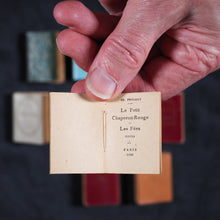 CH. PERRAULT
Le Petit
Chaperon Rouge
Les Fées
PARIS